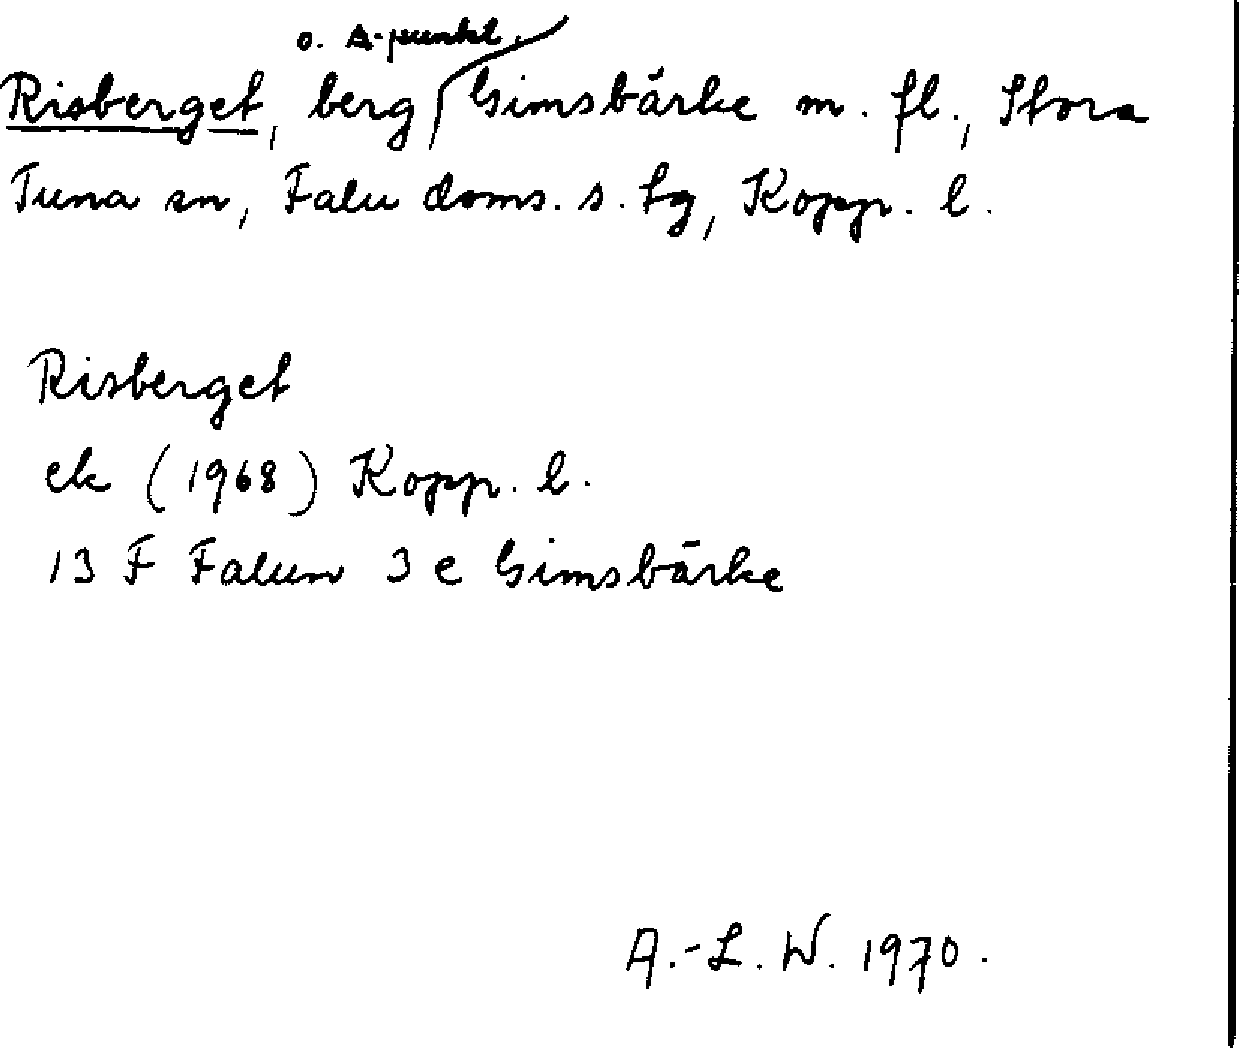 o. A-punkt,
Risberget, berg Gimsbärke m. fl., Stora
Tuna sn, Falu doms. s. tg, Kopp. l.
Risberget
ek (1968) Kopp. l.
13 F Falun 3 e Gimsbärke
A.-L. W. 1970.